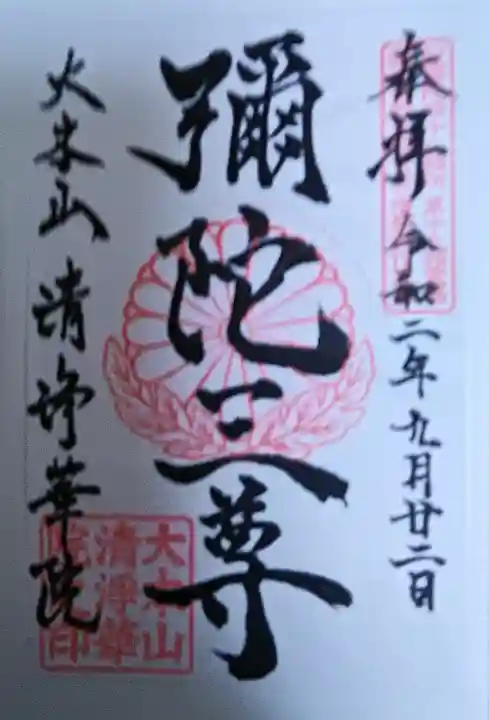 奉拝 令和二年九月廿二日
彌陀三尊
大本山 清浄華院
大本山
清浄華
院之印